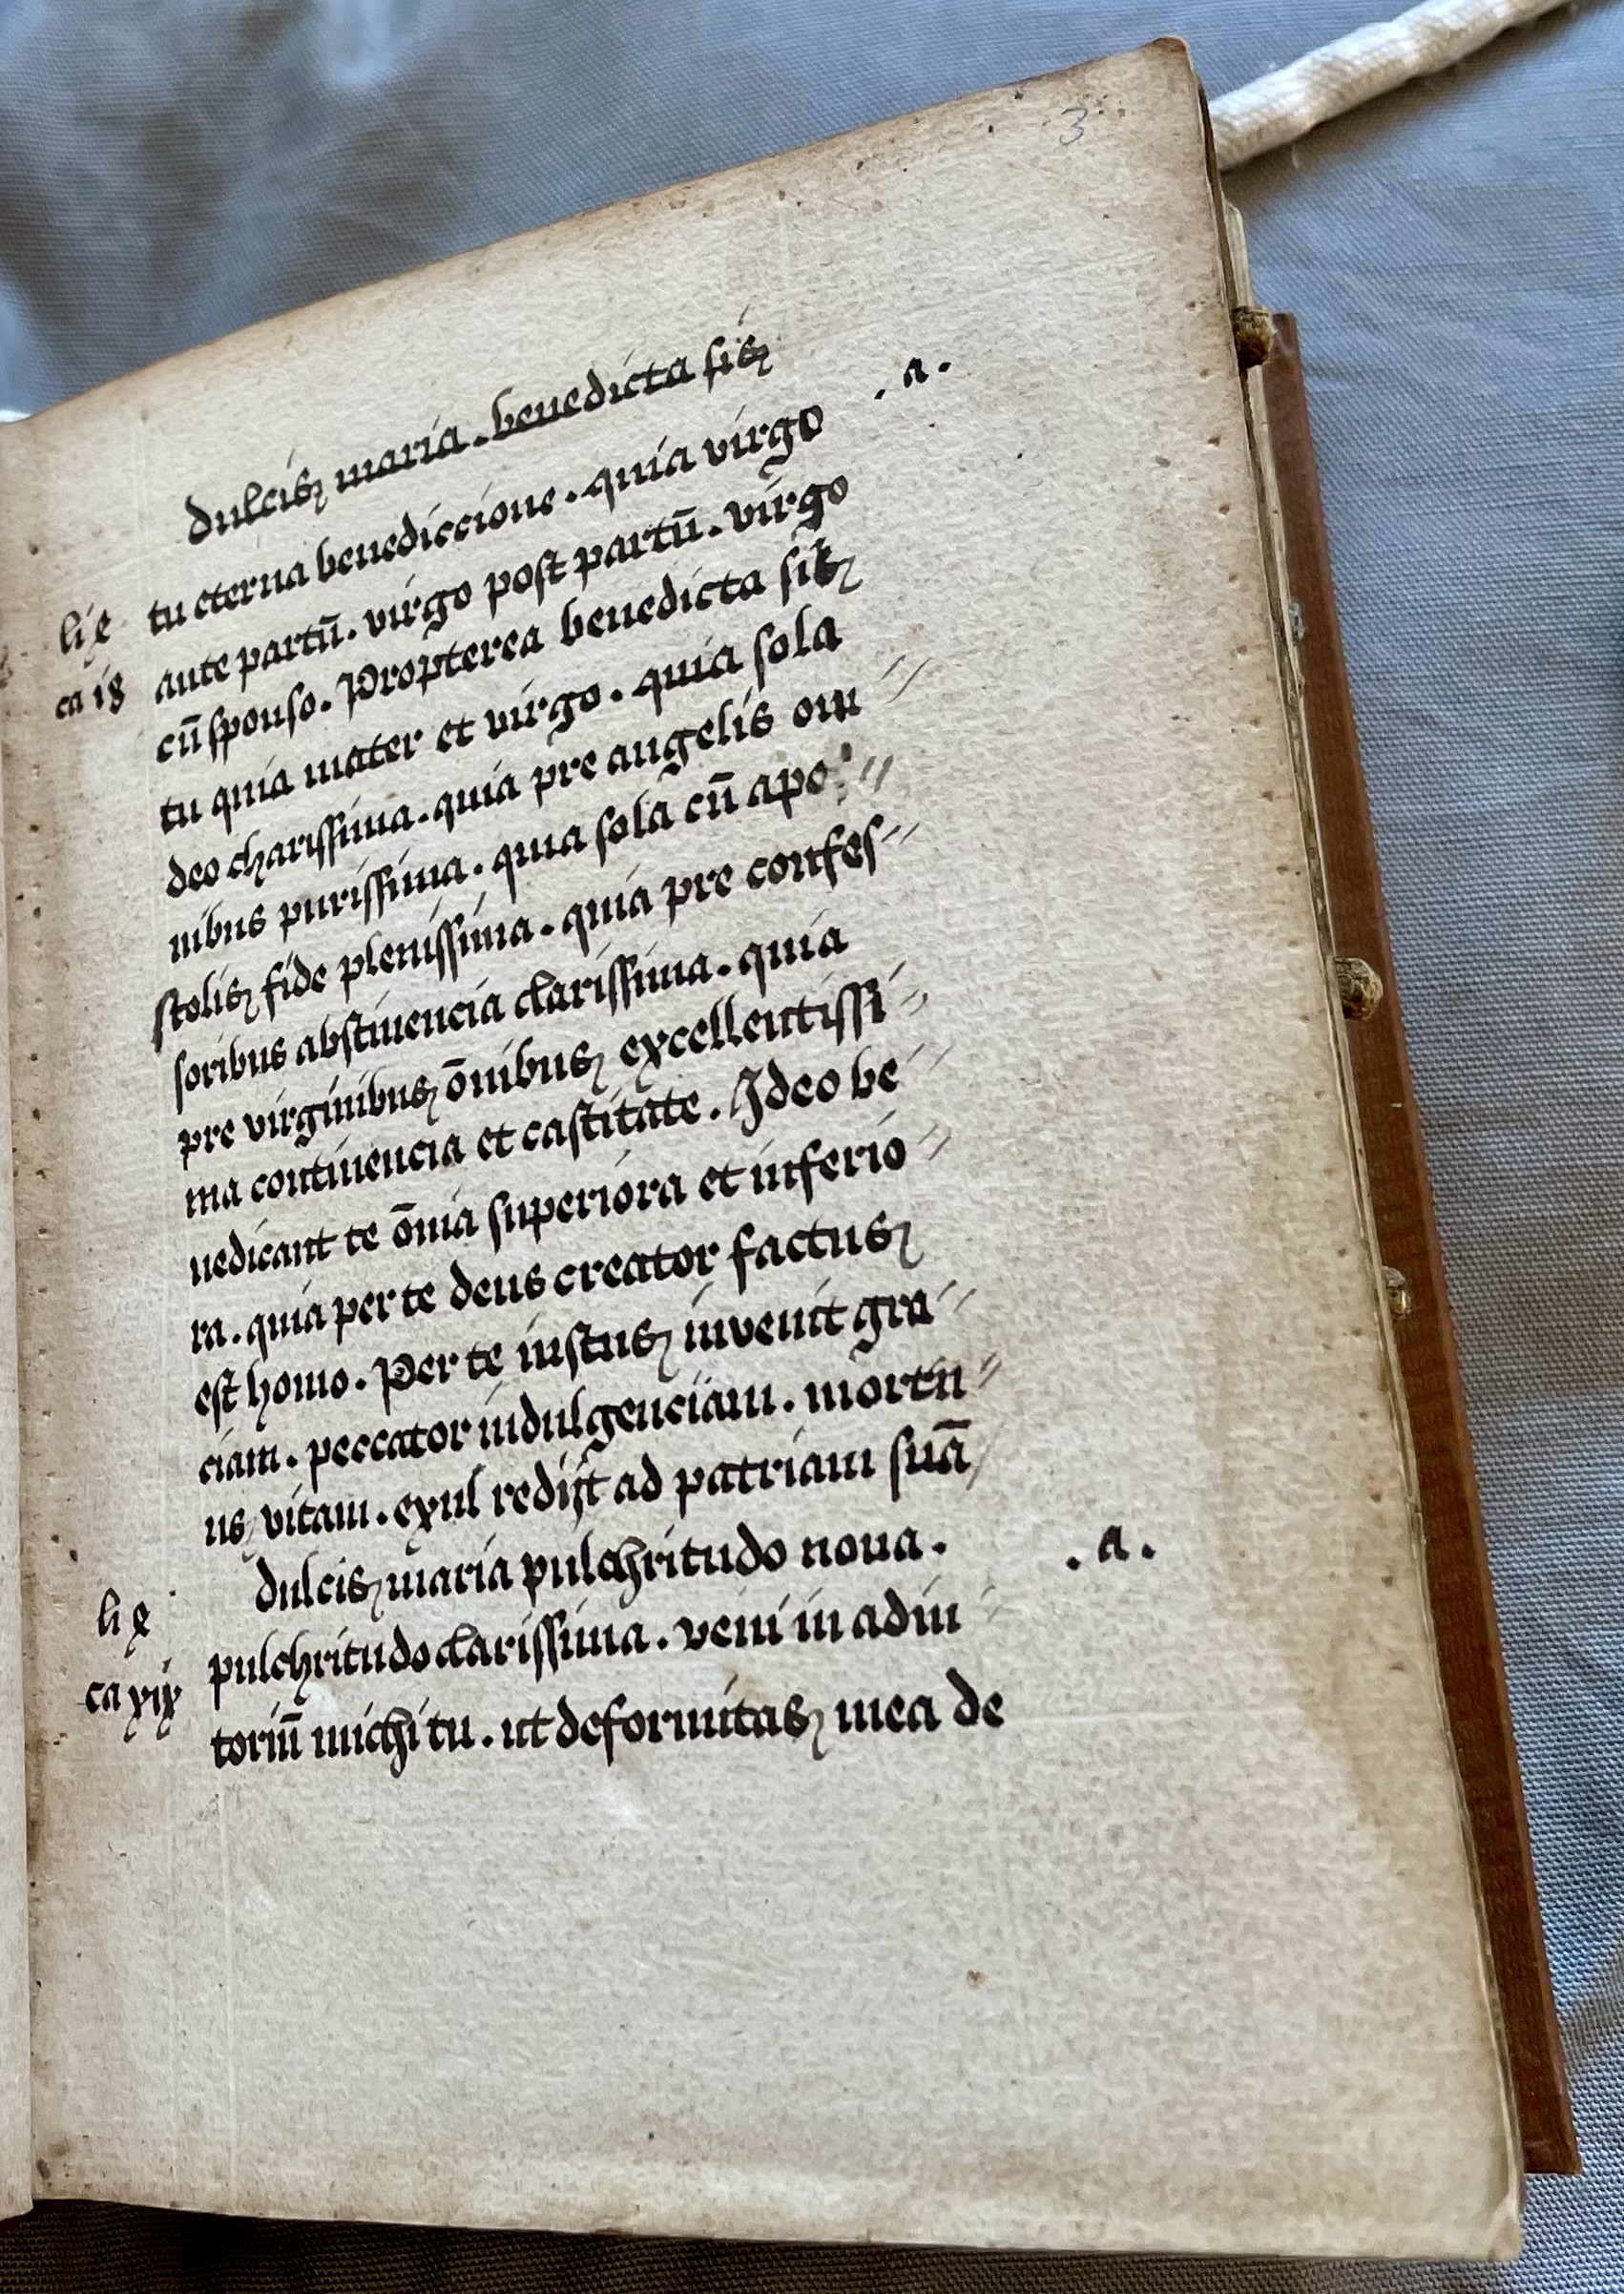 3
dulcis maria . benedicta sis . a .
tu eterna benediccione . quia virgo
li x ante partū . virgo post partū . virgo
ca 18 cū sponso . Propterea benedicta sis
tu quia mater et virgo . quia sola
deo charissima . quia pre angelis om //
nibus purissima . quia sola cū apo //
stolis fide plenissima . quia pre confes //
soribus abstinencia clarissima . quia
pre virginibus ōnibus excellentissi //
ma continencia et castitate . Ideo be //
nedicant te ōnia superiora et inferio //
ra . quia per te deus creator factus
est homo . Per te iustus invenit gra //
ciam . peccator indulgenciam . mortu //
us vitam . exul redijt ad patriam suā /
li x dulcis maria pulchritudo noua . . a .
ca xix pulchritudo clarissima . veni in adiu //
toriū michi tu . ut deformitas mea de